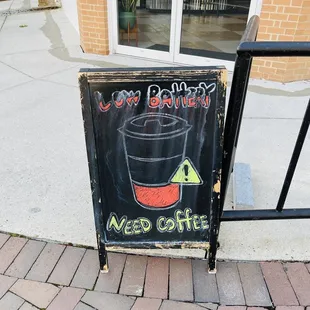 LOW BATTERY
!
NEED COFFEE